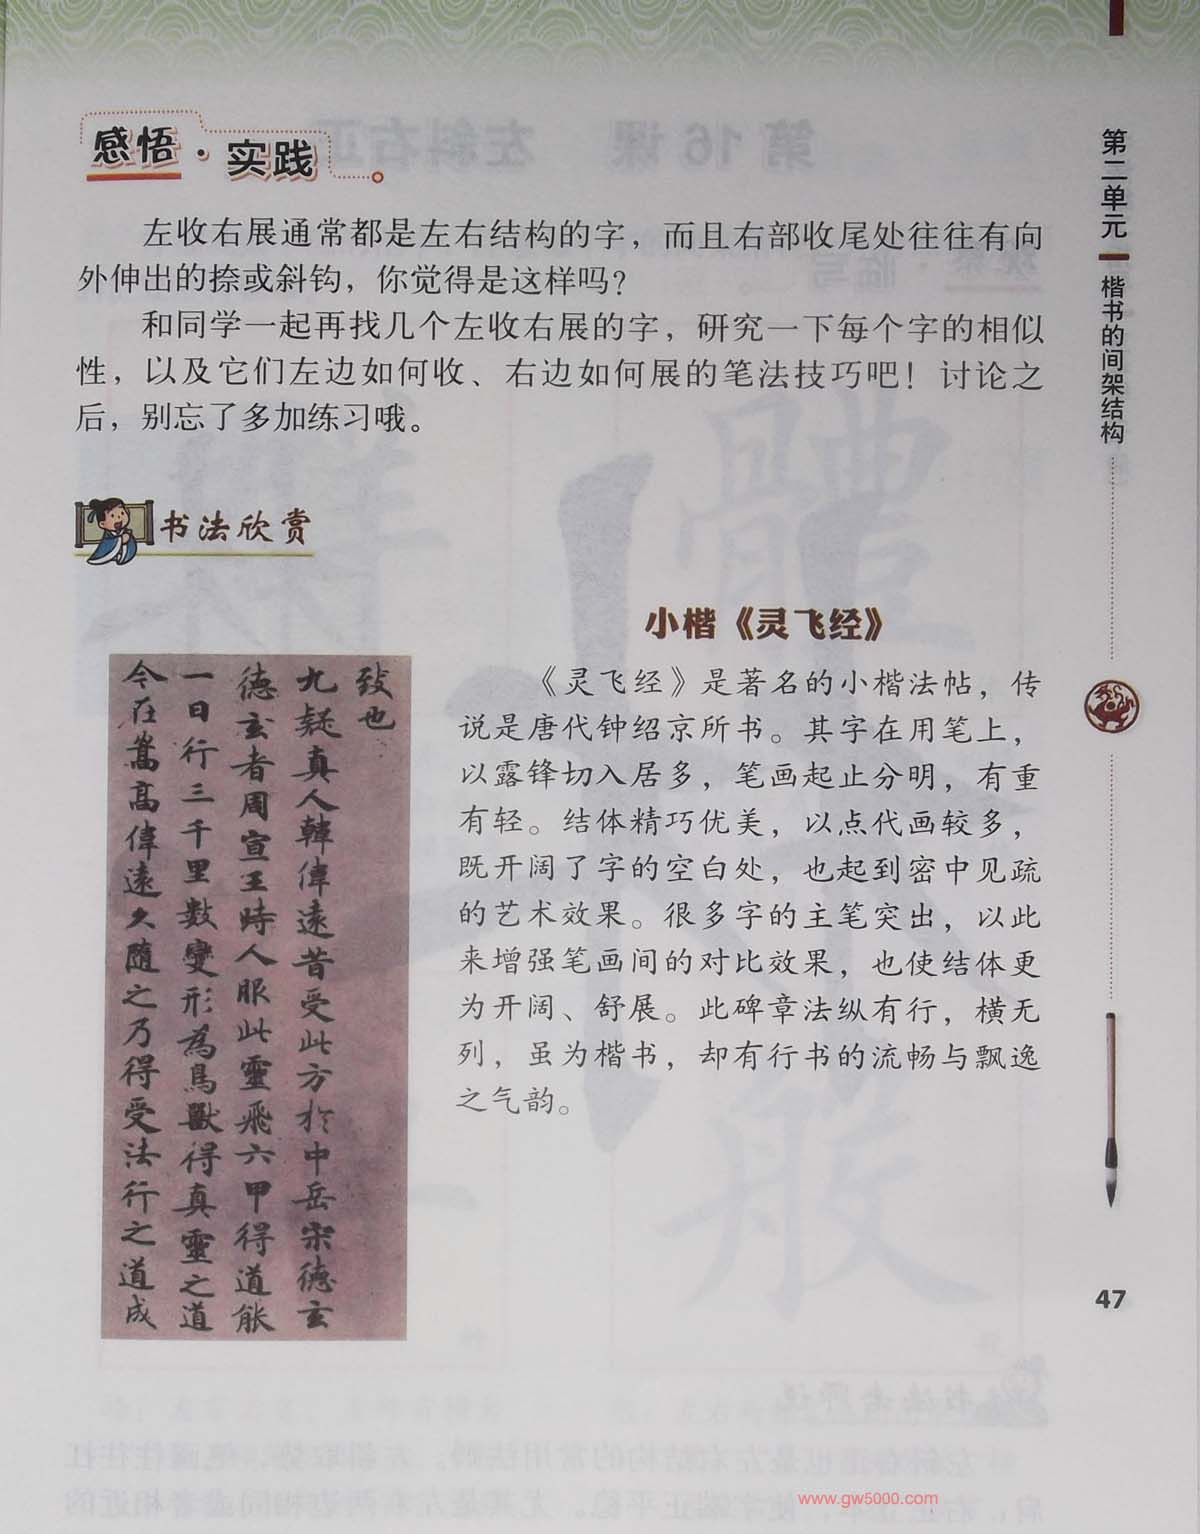 感悟·实践
左收右展通常都是左右结构的字，而且右部收尾处往往有向
外伸出的捺或斜钩，你觉得是这样吗？
和同学一起再找几个左收右展的字，研究一下每个字的相似
性，以及它们左边如何收、右边如何展的笔法技巧吧！讨论之
后，别忘了多加练习哦。
书法欣赏
小楷《灵飞经》
《灵飞经》是著名的小楷法帖，传
说是唐代钟绍京所书。其字在用笔上，
以露锋切入居多，笔画起止分明，有重
有轻。结体精巧优美，以点代画较多，
既开阔了字的空白处，也起到密中见疏
的艺术效果。很多字的主笔突出，以此
来增强笔画间的对比效果，也使结体更
为开阔、舒展。此碑章法纵有行，横无
列，虽为楷书，却有行书的流畅与飘逸
之气韵。
致也
九疑真人韓偉遠昔受此方於中岳宋德玄
德玄者周宣王時人服此靈飛六甲得道能
一日行三千里數變形為鳥獸得真靈之道
今在嵩高偉遠久隨之乃得受法行之道成
第二单元
楷书的间架结构
47
第16课 左斜右正
观察·临写
體
般
书法老师说
www.gw5000.com